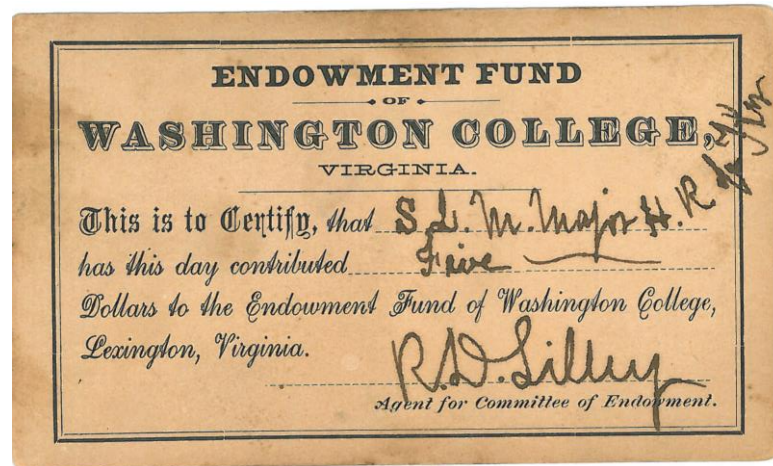 ENDOWMENT FUND
OF
WASHINGTON COLLEGE,
VIRGINIA.
This is to Certify, that S. L. M. Major H. R. of Ky
has this day contributed Five
Dollars to the Endowment Fund of Washington College,
Lexington, Virginia.
R. D. Lilley
Agent for Committee of Endowment.